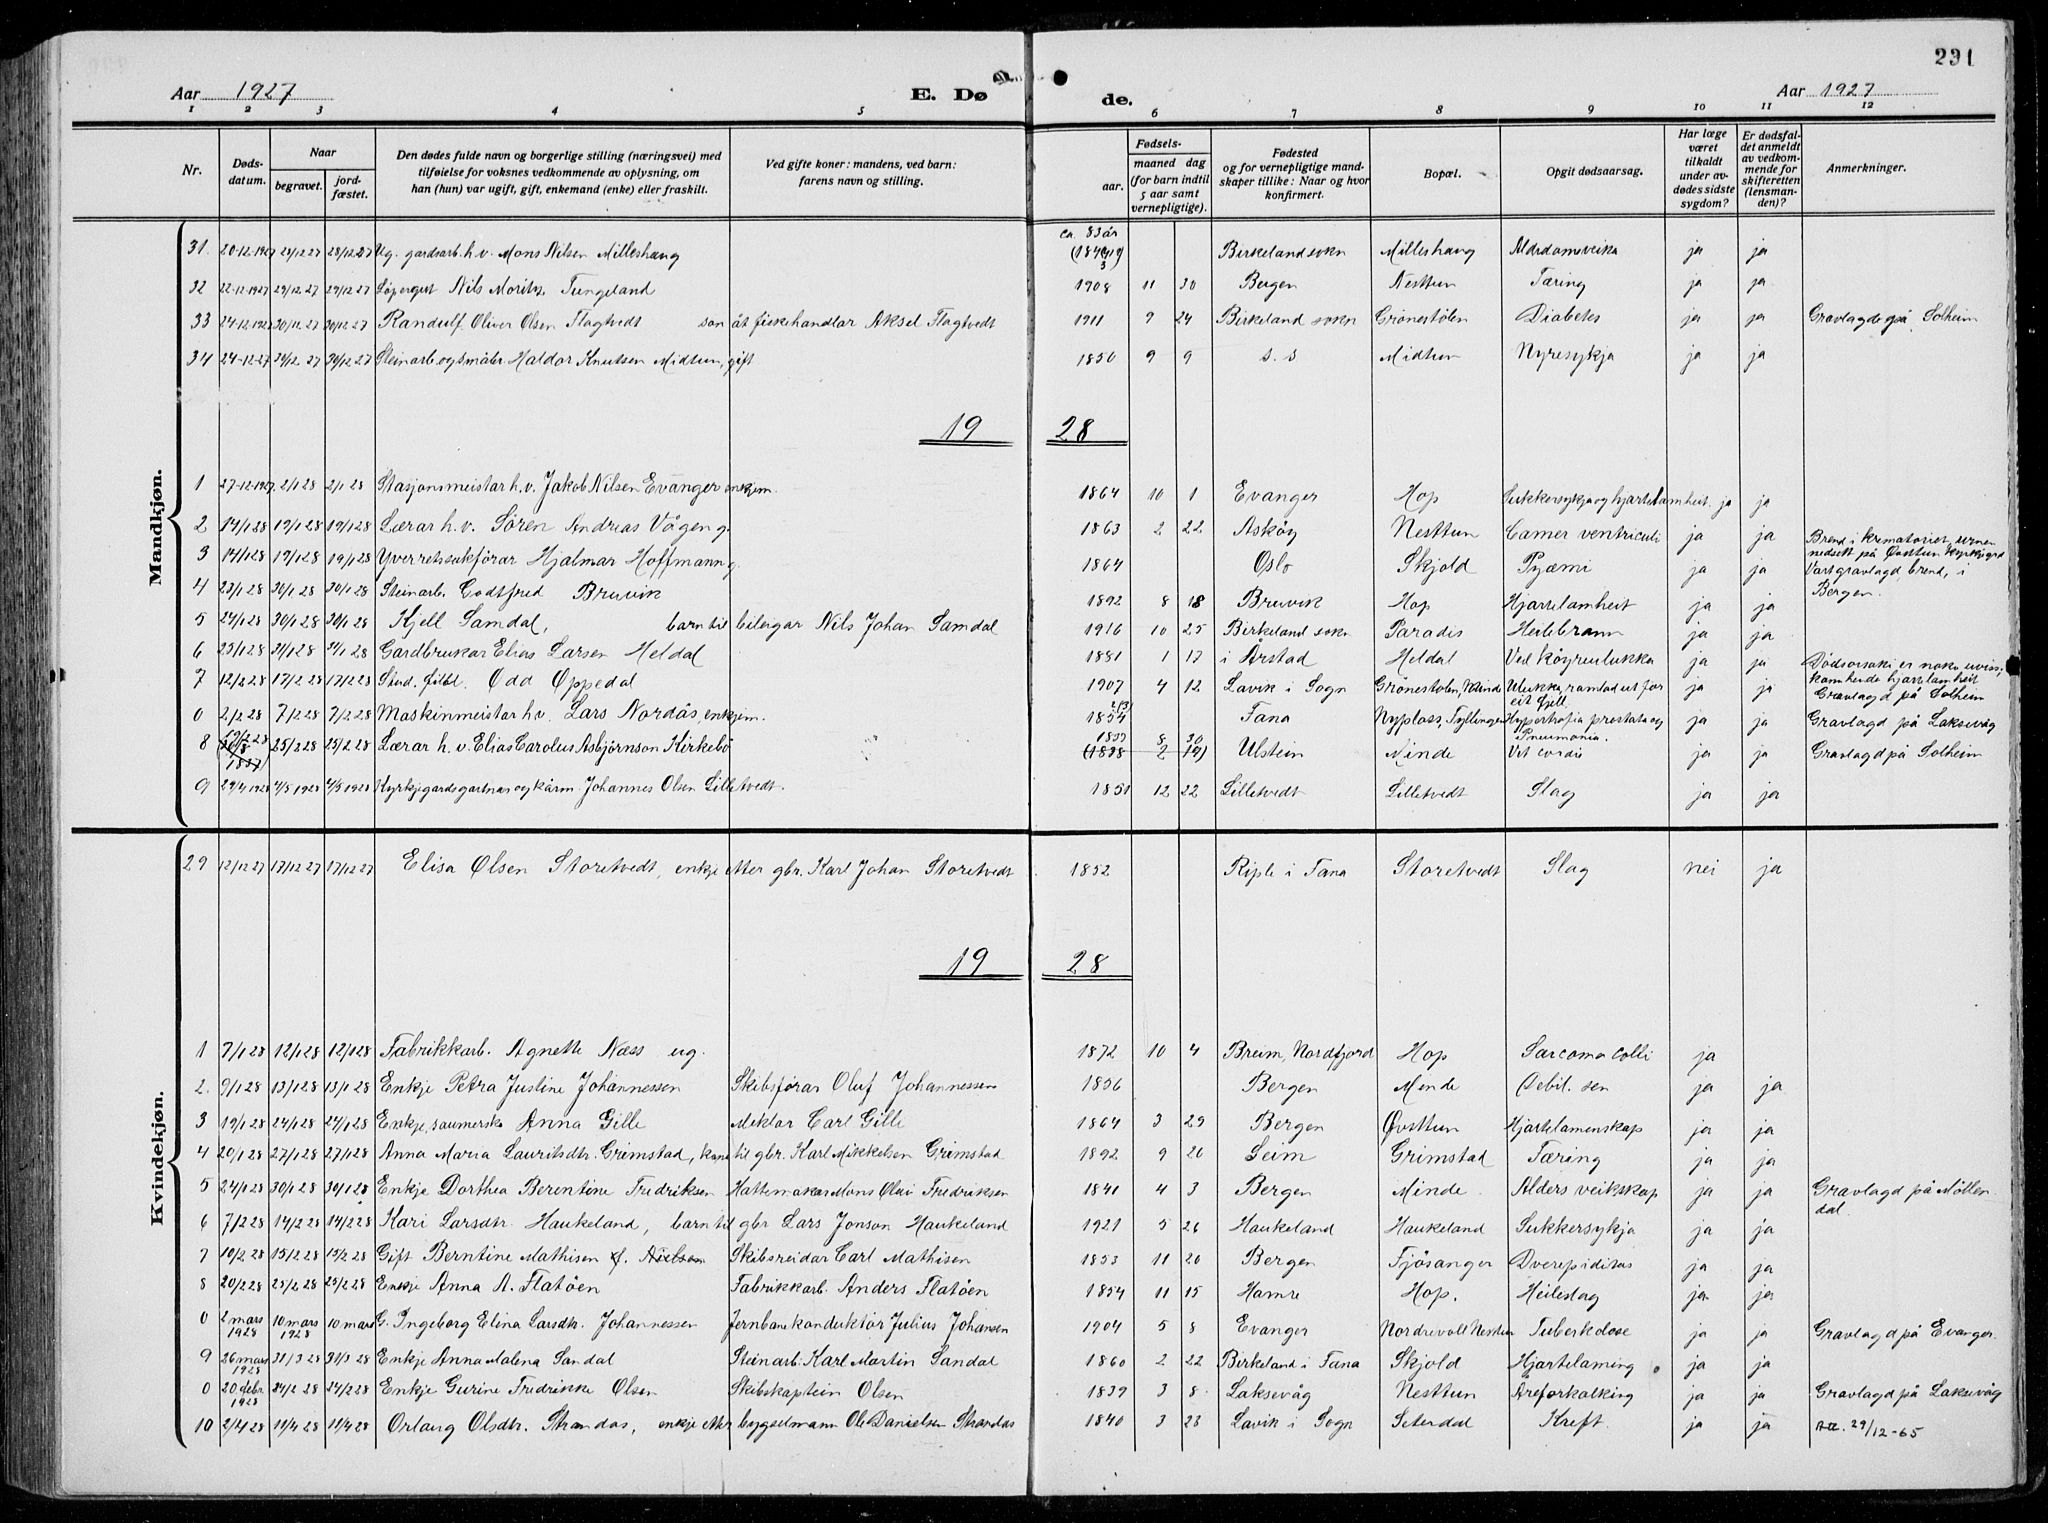 231
Aar 1927 E. Dø
de. Aar 1927
1 2 3 4 5 6 7 8 9 10 11 12
Nr. Døds-datum. Naar begravet. jord-fæstet. Den dødes fulde navn og borgerlige stilling (næringsvei) med tilføielse for voksnes vedkommende av oplysning, om han (hun) var ugift, gift, enkemand (enke) eller fraskilt. Ved gifte koner: mandens, ved barn: farens navn og stilling. Fødsels- aar. maaned dag (for barn indtil 5 aar samt vernepligtige). Fødested og for vernepligtige mandskaper tillike: Naar og hvor konfirmert. Bopæl. Opgit dødsaarsag. Har læge været tilkaldt under avdødes sidste sygdom? Er dødsfaldet anmeldt av vedkommende for skifteretten (lensmanden)? Anmerkninger.
Mandkjøn.
31. 20-12-1927 28/12 27 28/12 27 Ug. gardsarb. h.v. Mons Nilsen Milleshaug ca. 83 år Birkeland sokn Milleshaug Alderdomsveika ja ja
32 22-12-1927 29/12 27 29/12 27 Løpergut Nils Moritz Tungeland 1908 11 30 Bergen Nesttun Tæring ja ja
33 24-12-1927 30/12 27 30/12 27 Randulf Oliver Olsen Flagtvedt son åt fiskehandlar Aksel Flagtvedt 1911 9 24 Birkeland sokn Grønestølen Diabetes ja ja Gravlagde på Solheim
34 24-12-27 29/12 27 29/12 27 Steinarb. og småbr. Haldor Knutsen Midtun, gift 1850 9 9 s. s Midtun Nyresykja ja ja
19 28
1 27-12-1927 2/1 28 2/1 28 Stasjonsmeistar h.v. Jakob Nilsen Evanger enkjem. 1864 10 1 Evanger Hop Sukkersykja og hjartelamheit. ja ja
2 14/1 28 19/1 28 19/1 28 Lærar h.v. Søren Andreas Vågen g. 1863 2 22 Askøy Nesttun Camer ventriculi ja ja Brend i krematoriet, urnen nedsett på Øvsttun kyrkjegrd
3 14/1 28 19/1 28 19/1 28 Yverretssakførar Hjalmar Hoffmann g. 1864 Oslo Skjold Pyæmi ja ja Vart gravlagd, brend, i Bergen.
4 23/1 28 30/1 28 30/1 28 Steinarb. Godtfred Bruvik 1892 8 18 Bruvik Hop Hjartelamheit ja ja
5 24/1 28 30/1 28 30/1 28 Kjell Samdal, barn til bileigar Nils Johan Samdal 1916 10 25 Birkeland sokn Paradis Heilebrann ja ja
6 25/1 28 31/1 28 31/1 28 Gardbrukar Elias Larsen Meldal 1881 1 17 i Årstad Meldal Ved køyreulukka ja ja Dødsorsaki er noko uviss, kan hende hjartelamheit
7 12/2 28 17/2 28 17/2 28 Stud. filol. Odd Oppedal 1907 4 12 Lavik i Sogn Grønestølen, Minde Ulukka, ramlad ut for eit fjell ja ja Gravlagd på Solheim
0 2/2 28 7/2 28 7/2 28 Maskinmeistar h.v. Lars Nordås, enkjem. 1854 Fana Nyplass, Fyllingen Hyperhofia prostata og Pneumonia. ja ja Gravlagd på Laksevåg
8 19/2 28 25/2 28 25/2 28 Lærar h.v. Elias Carolus Asbjørnson Kirkebø 1837 8 30 (1838 2 19) Ulstein Minde Vit. cordis ja ja Gravlagd på Solheim
9 29/4 1928 4/5 1928 4/5 1928 Kyrkjegardsgartnar og kårm. Johannes Olsen Lilletvedt. 1851 12 22 Lilletvedt Lilletvedt Slag ja ja
Kvindekjøn.
29 12/12 27 17/12 27 17/12 27 Elisa Olsen Storetvedt, enkje etter gbr. Karl Johan Storetvedt 1852 Riple i Fana Storetvedt Slag nei ja
19 28
1 7/1 28 12/1 28 12/1 28 Fabrikkarb. Agnethe Næss ug. 1872 10 4 Breim, Nordfjord Hop Sarcoma colli ja
2. 9/1 28 13/1 28 13/1 28 Enkje Petra Justine Johannessen Skibsførar Oluf Johannessen 1856 Bergen Minde Debil. sen ja ja
3 19/1 28 24/1 28 24/1 28 Enkje, saumerske Anna Gille Meklar Carl Gille 1864 3 29 Bergen Øvsttun Hjartelamenskap ja ja
4 20/1 28 27/1 28 27/1 28 Anna Maria Lauritsdtr. Grimstad, kona til gbr. Karl Mikkelsen Grimstad 1892 9 20 Seim Grimstad Tæring ja ja
5 24/1 28 30/1 28 30/1 28 Enkje Dorthea Berentine Fredriksen Hattemakar Mons Olai Fredriksen 1841 4 3 Bergen Minde. Alders veikskap ja ja Gravlagd på Møllen dal.
6 7/2 28 14/2 28 14/2 28 Kari Larsdtr. Haukeland, barn til gbr Lars Jonson Haukeland 1921 5 26 Haukeland Haukeland Sukkersykja ja ja
7 10/2 28 15/2 28 15/2 28 Gift Berntine Mathisen f. Nielsen Skibsreidar Carl Mathisen 1853 11 20 Bergen Fjøsanger Dverepiditas ja ja
8 20/2 28 25/2 28 25/2 28 Enkje Anna A. Flatøen Fabrikkarb. Anders Flatøen 1854 11 15 Hamre Hop. Heileslag ja ja
0 2 mars 1928 10 mars 1928 10 mars G. Ingeborg Elina Larsdtr. Johannessen Jernbanekonduktør Julius Johansen 1904 5 8 Evanger Nordrevoll Nesttun Tuberkolose ja ja Gravlagd på Evanger.
9 26 mars 1928 31/3 28 31/3 28 Enkje Anna Malena Sandal Steinarb. Karl Martin Sandal 1860 2 22 Birkeland i Fana Skjold Hjartelaming ja ja
0 20 febr. 1928 24/2 28 24/2 28 Enkje Gurine Fredrikke Olsen Skibskaptein Olsen 1839 3 8. Laksevåg Nesttun Areforkalking ja ja Gravlagd på Laksevåg
10 2/4 28 11/4 28 11/4 28 Orlaug Olsdtr. Strandos, enkje etter bygselmann Ole Danielsen Strandås 1840 3 23 Lavik i Sogn Seterdal Kreft. ja ja 29/12-65